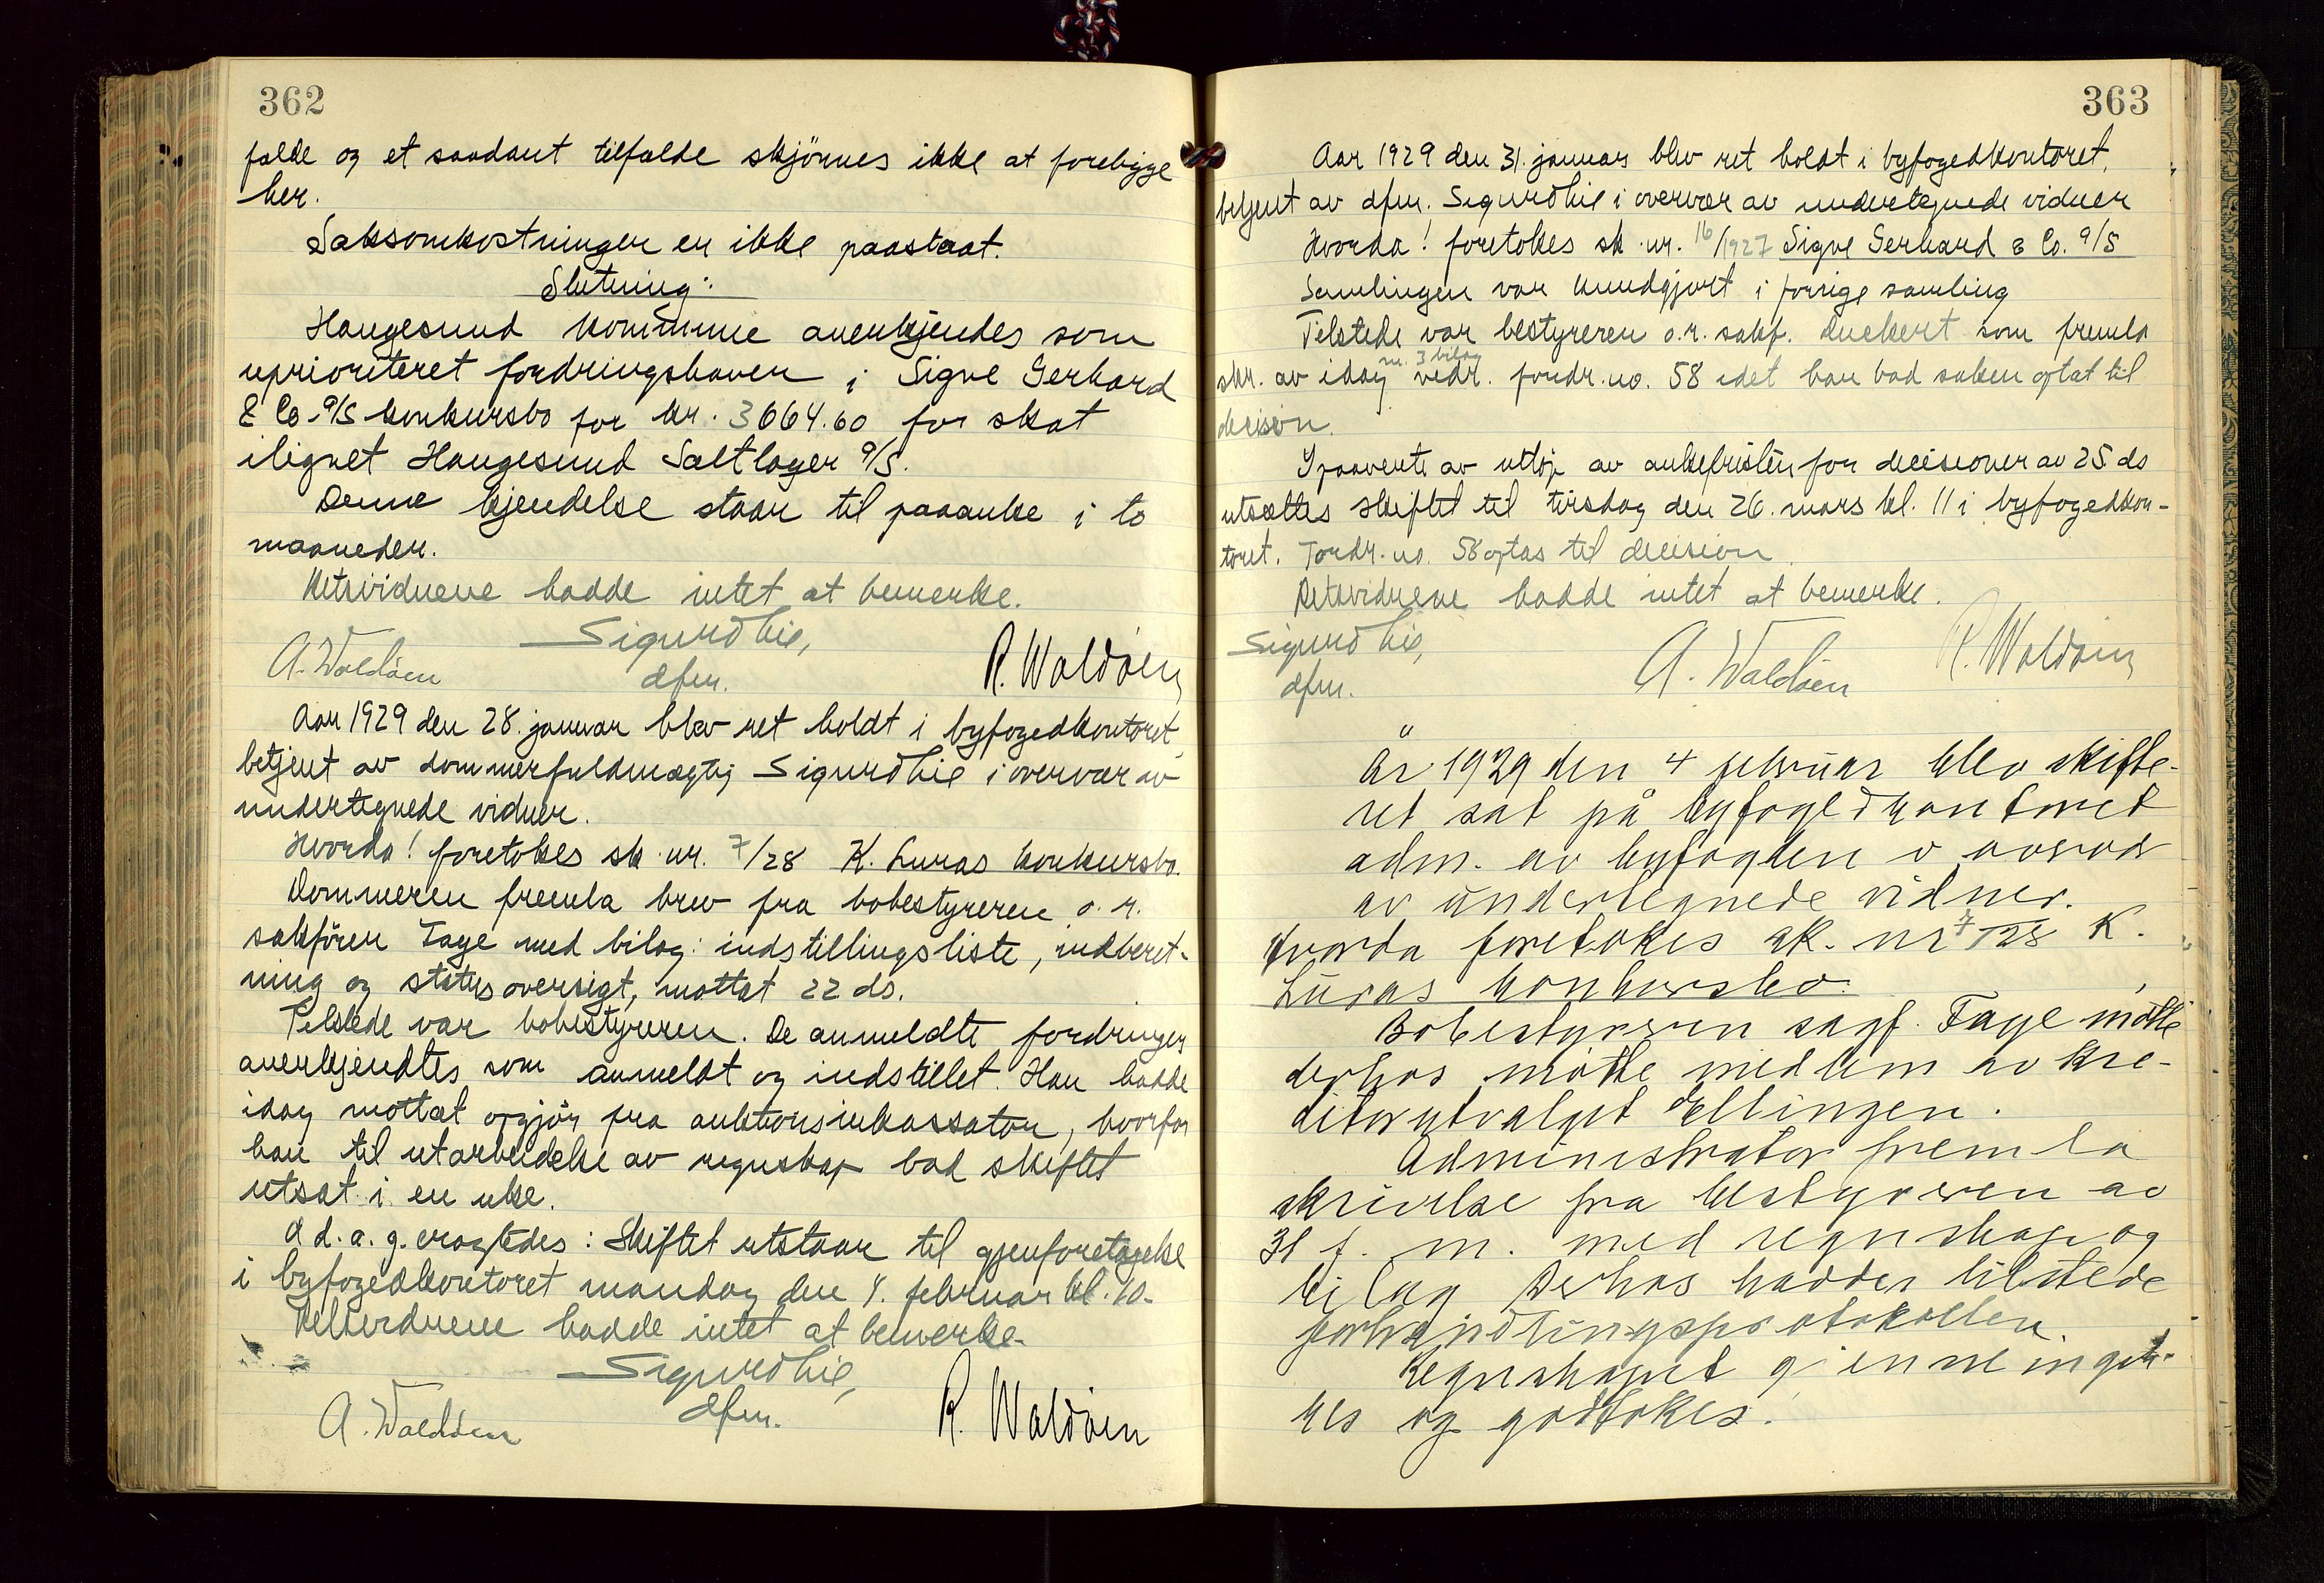 362
falde og et saadant tilfælde skjönnes ikke at foreligge
her.
Saksomkostninger er ikke paastaat.
Slutning:
Haugesund kommune anerkjendes som
uprioriteret fordringshaver i Sigve Gerhard
& Co. A/S konkursbo for kr. 3664.60 for skat
ilignet Haugesund Saltlager A/S.
Denne kjendelse staar til paaanke i to
maaneder.
Retsvidnene hadde intet at bemerke.
Sigurd Lie,
A. Waldöen dfm. R. Waldöen
Aar 1929 den 28. januar blev ret holdt i byfogedkontoret,
betjent av dommerfuldmægtig Sigurd Lie i overvær av
undertegnede vidner.
Hvorda! foretokes sk. nr. 7/28 K. Luras konkursbo.
Dommeren fremla brev fra bobestyreren o. r.
sakfören Tage med bilag: indstillingsliste, indberet-
ning og statusoversigt, mottat 22 ds.
Tilstede var bobestyreren. De anmeldte fordringer
anerkjendtes som anmeldt og indstillet. Han hadde
idag mottat opgjör fra auktionsinkassator, hvorfor
han til utarbeidelse av regnskap bad skiftet
utsat i en uke.
d.a.g. eragtedes: Skiftet utstaar til gjenforetagelse
i byfogedkontoret mandag den 4. februar kl. 10.
Retsvidnene hadde intet at bemerke.
Sigurd Lie,
A. Waldöen dfm. R. Waldöen
363
Aar 1929 den 31. januar blev ret holdt i byfogedkontoret,
betjent av dfm. Sigurd Lie i overvær av undertegnede vidner
Hvorda! foretokes sk. nr. 16/1927 Sigve Gerhard & Co. A/S
Samlingen var kundgjort i forrige samling
Tilstede var bestyreren o.r. sakf. som fremla
m. 3 bilag
skr. av idag vedr. fordr. no. 58 idet han bad saken optat til
decision.
I paavente av utlöp av ankefristen for decisioner av 25 ds
utsættes skiftet til tirsdag den 26. mars kl. 11 i byfogedkon-
toret. Fordr. no. 58 optas til decision.
Retsvidnene hadde intet at bemerke.
Sigurd Lie,
dfm. A. Waldöen R. Waldöen
År 1929 den 4 februar blev skifte-
ret sat på byfogedkontoret
adm. av byfogden i
av undertegnede vidner.
Hvorda foretokes sk. nr 7/28 K.
Luras konkursbo.
Bobestyreren sagf. Tage mötte
derhos mötte medlem av kre-
ditorutvalget Ellingsen.
Administrator fremla
skrivelse fra bestyreren av
31 f. m. med regnskap og
bilag Derhos haddes tilstede
forhandlingsprotokollen.
Regnskapet gjennemgik-
kes og godtokes.